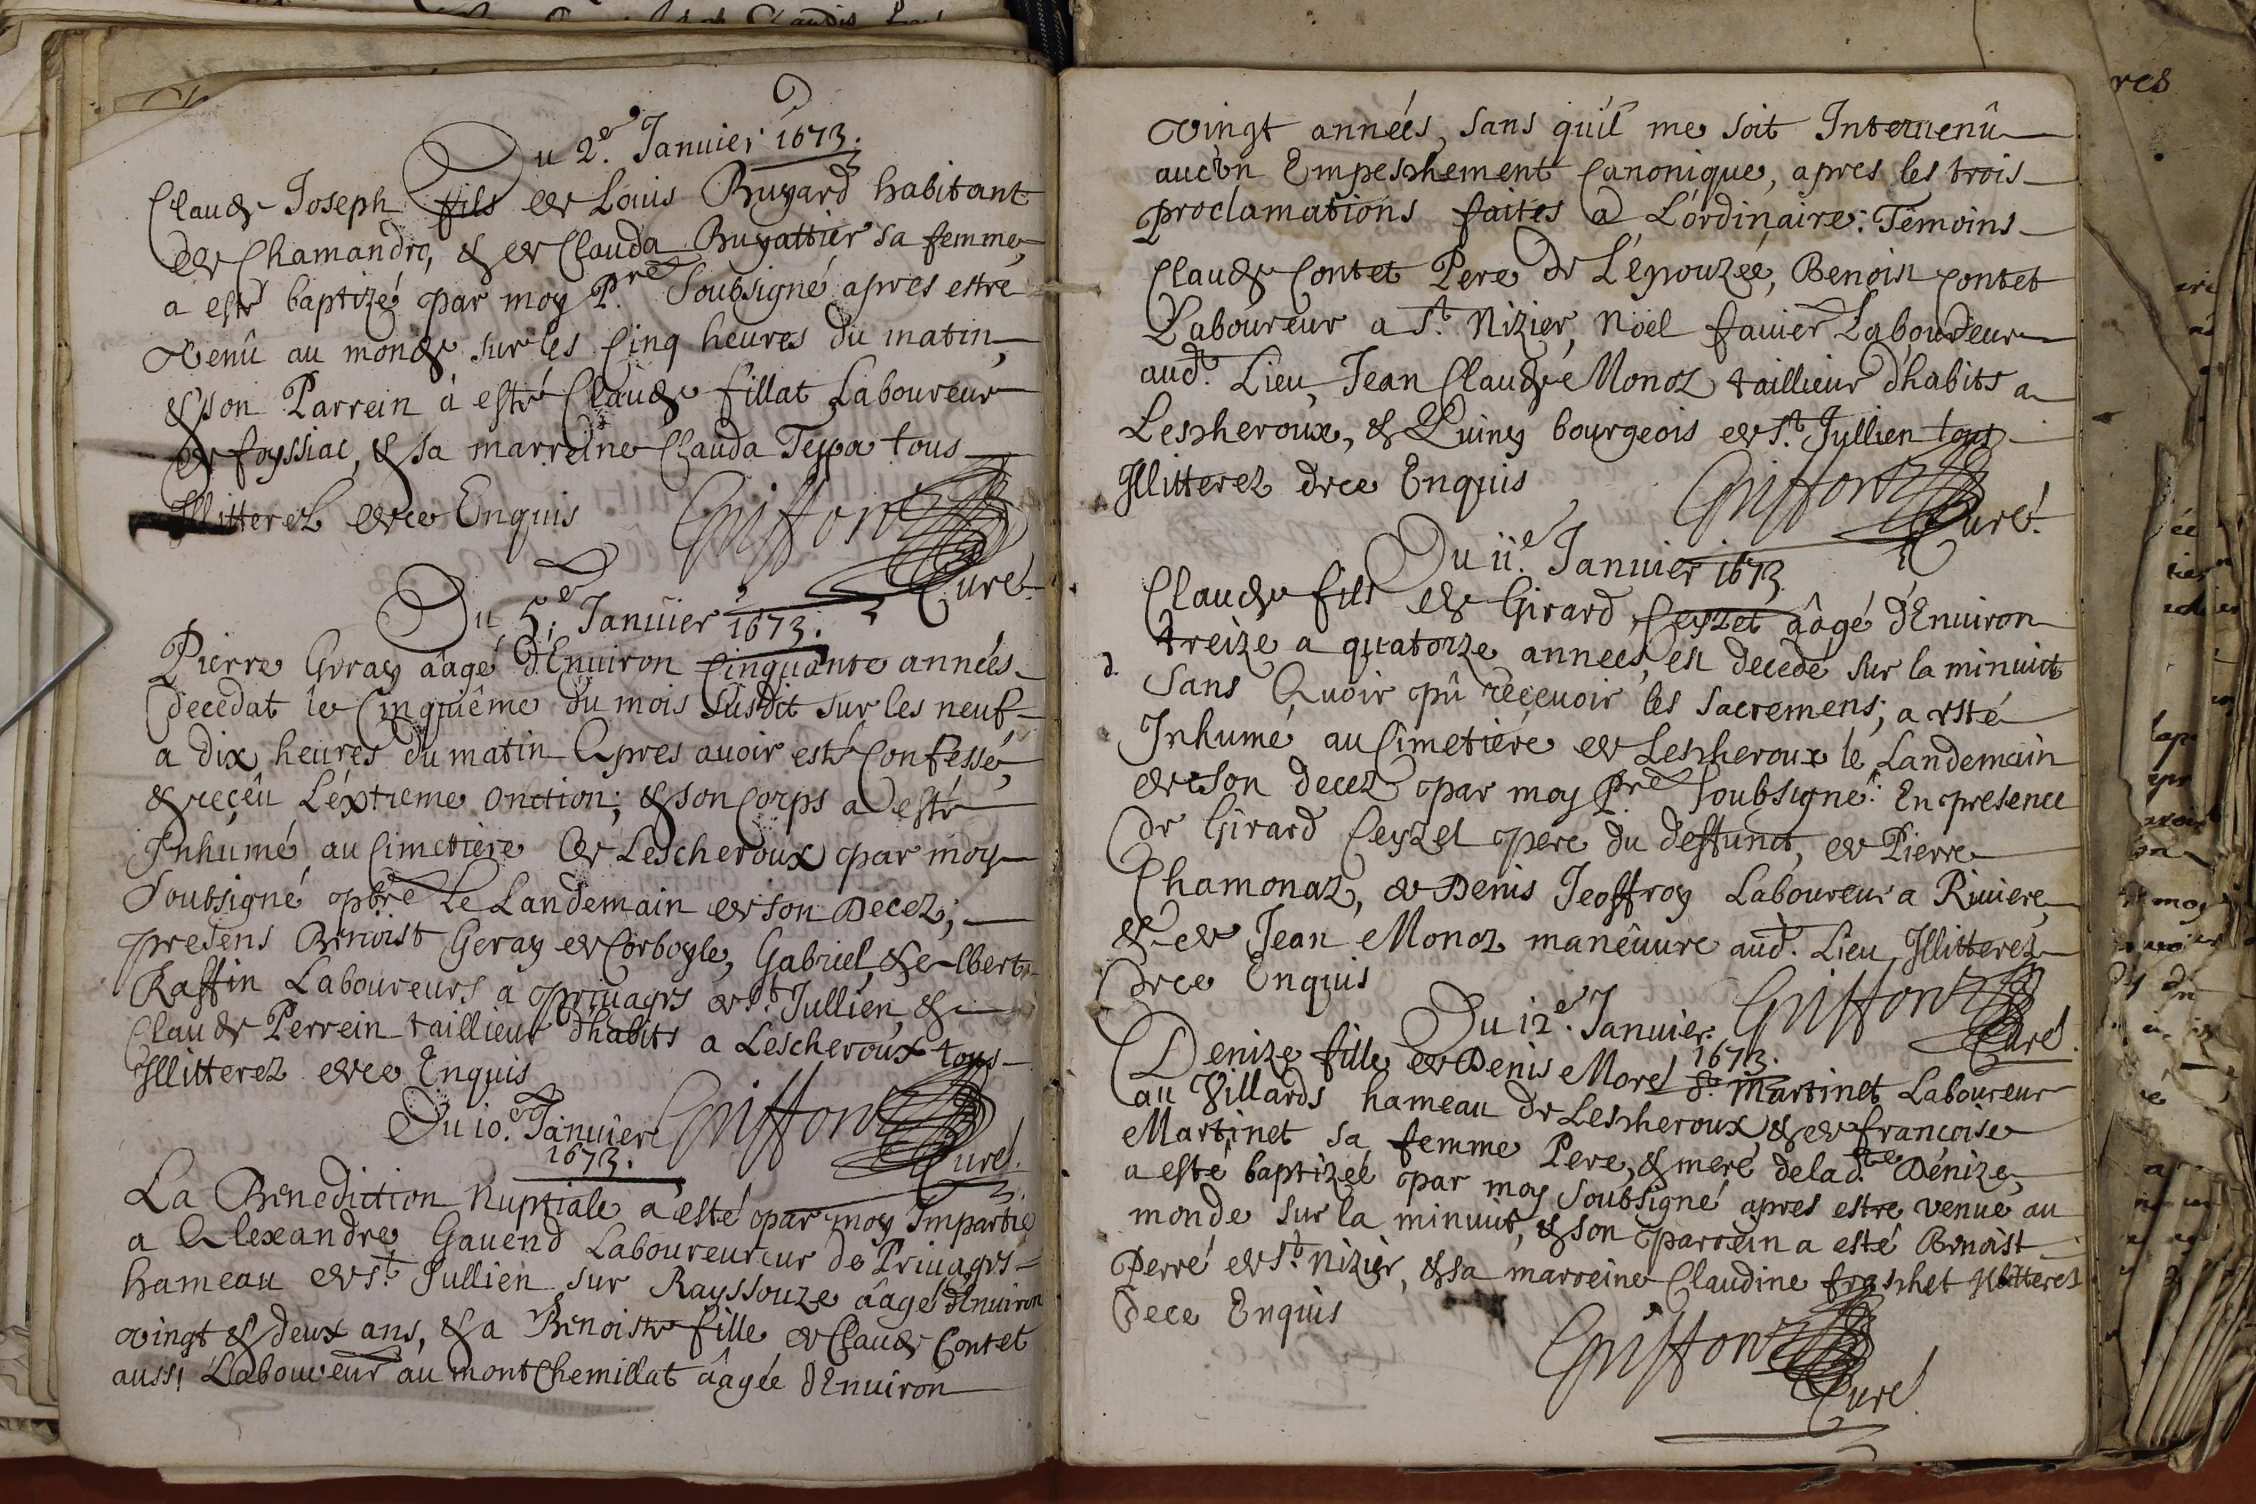 Du 2.e Januier 1673.
Claude Joseph fils de Louis Buyard habitant
de Chamandre, & de Clauda Buyattier sa femme,
a esté baptizé par moy P.re Soubsigné apres estre
Venû au monde sur les Cinq heures du matin,
& son Parrein à esté Claude fillat Laboureur
de foyssiac, & sa marreine Clauda Teppa tous
Illitterez de ce Enquis Griffon
Curé.
Du 5.e Januier 1673.
Pierre Geray âagé d'Enuiron Cinquante années
Decedat le Cinquiême du mois Susdit sur les neuf
a dix heures du matin Apres auoir esté Confessé,
& reçeû L'éxtreme Onction; & son Corps a esté
Inhumé au Cimetiere de Lescheroux par moy
Soubsigné pbre Le Landemain de son Decez;
presens Benoist Geray de Corboyle, Gabriel, & Albert
Raffin Laboureurs à Priuages de S.t Jullien, &
Claude Perrein taillieur dhabits a Lescheroux tous
Illitterez de ce Enquis
Du 10.e Januîer Griffon
1673. Curé.
La Benediction Nuptiale a esté par moy Impartie
a Alexandre Gauend Laboureureur de Priuages
hameau de S.t Jullien sur Rayssouze âagé d'Enuiron
vingt & deux ans, & a Benoiste fille de Claude Contet
aussi Laboureur au mont Chemillat âagée d'Enuiron
vingt années, sans qu'il me soit Interuenû
aucun Empeschement Canonique, apres les trois
proclamations faites a L'ordinaire: Témoins
Claude Contet Pere de L'épouzée, Benoist Contet
Laboureur a S.t Nizier, Noël fauier Laboureur
aud.t Lieu, Jean Claude Monoz taillieur dhabits a
Lescheroux, & Puiney bourgeois de S.t Jullien tous
Illitterez de ce Enquis Griffon
Curé.
Du 11.e Januier 1673
Claude fils de Girard Ceyzet âagé d'Enuiron
treize a quatorze années, est decedé sur la minuict
d.
Sans Auoir pû reçeuoir les sacremens; a esté
Inhumé au Cimetiere de Lescheroux le Landemain
de son decez par moy Pre Soubsigné: En presence
de Girard Ceyzet pere du deffunct, de Pierre
Chamonaz, de Denis Jeoffroy Laboureur a Riuiere,
& de Jean Monoz manêuure aud. Lieu Illitterez
de ce Enquis
Du 12.e Januier. Griffon
1673. Curé.
Denize fille de Denis Morel d.t Martinet Laboureur
au Villards hameau de Lescheroux & de francoise
Martinet sa femme Pere, & mere de lad.te Dénize,
a esté baptizée par moy Soubsigné apres estre venue au
monde sur la minuict, & son parrein a esté Benoist
Perré de S.t Nizier, & sa marreine Claudine froschet Illitterez
de ce Enquis
Griffon
Curé.